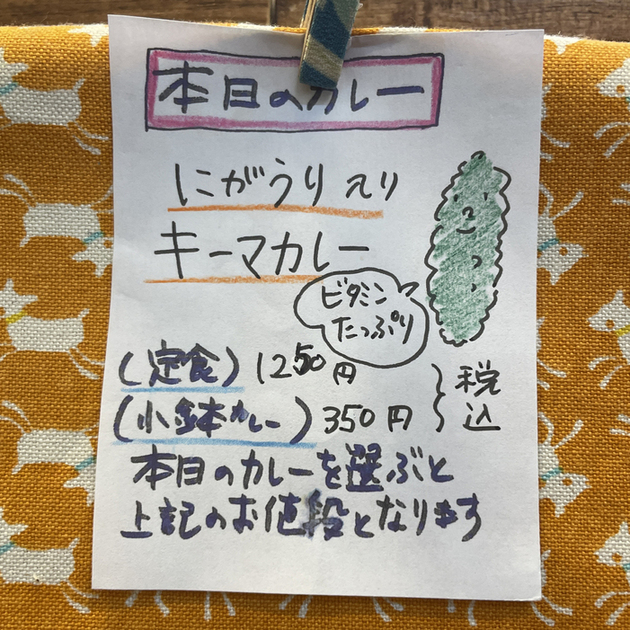 本日のカレー
にがうり入り
キーマカレー
ビタミン
たっぷり
(定食) 1250円
(小鉢カレー) 350円
税込
本日のカレーを選ぶと
上記のお値段となります